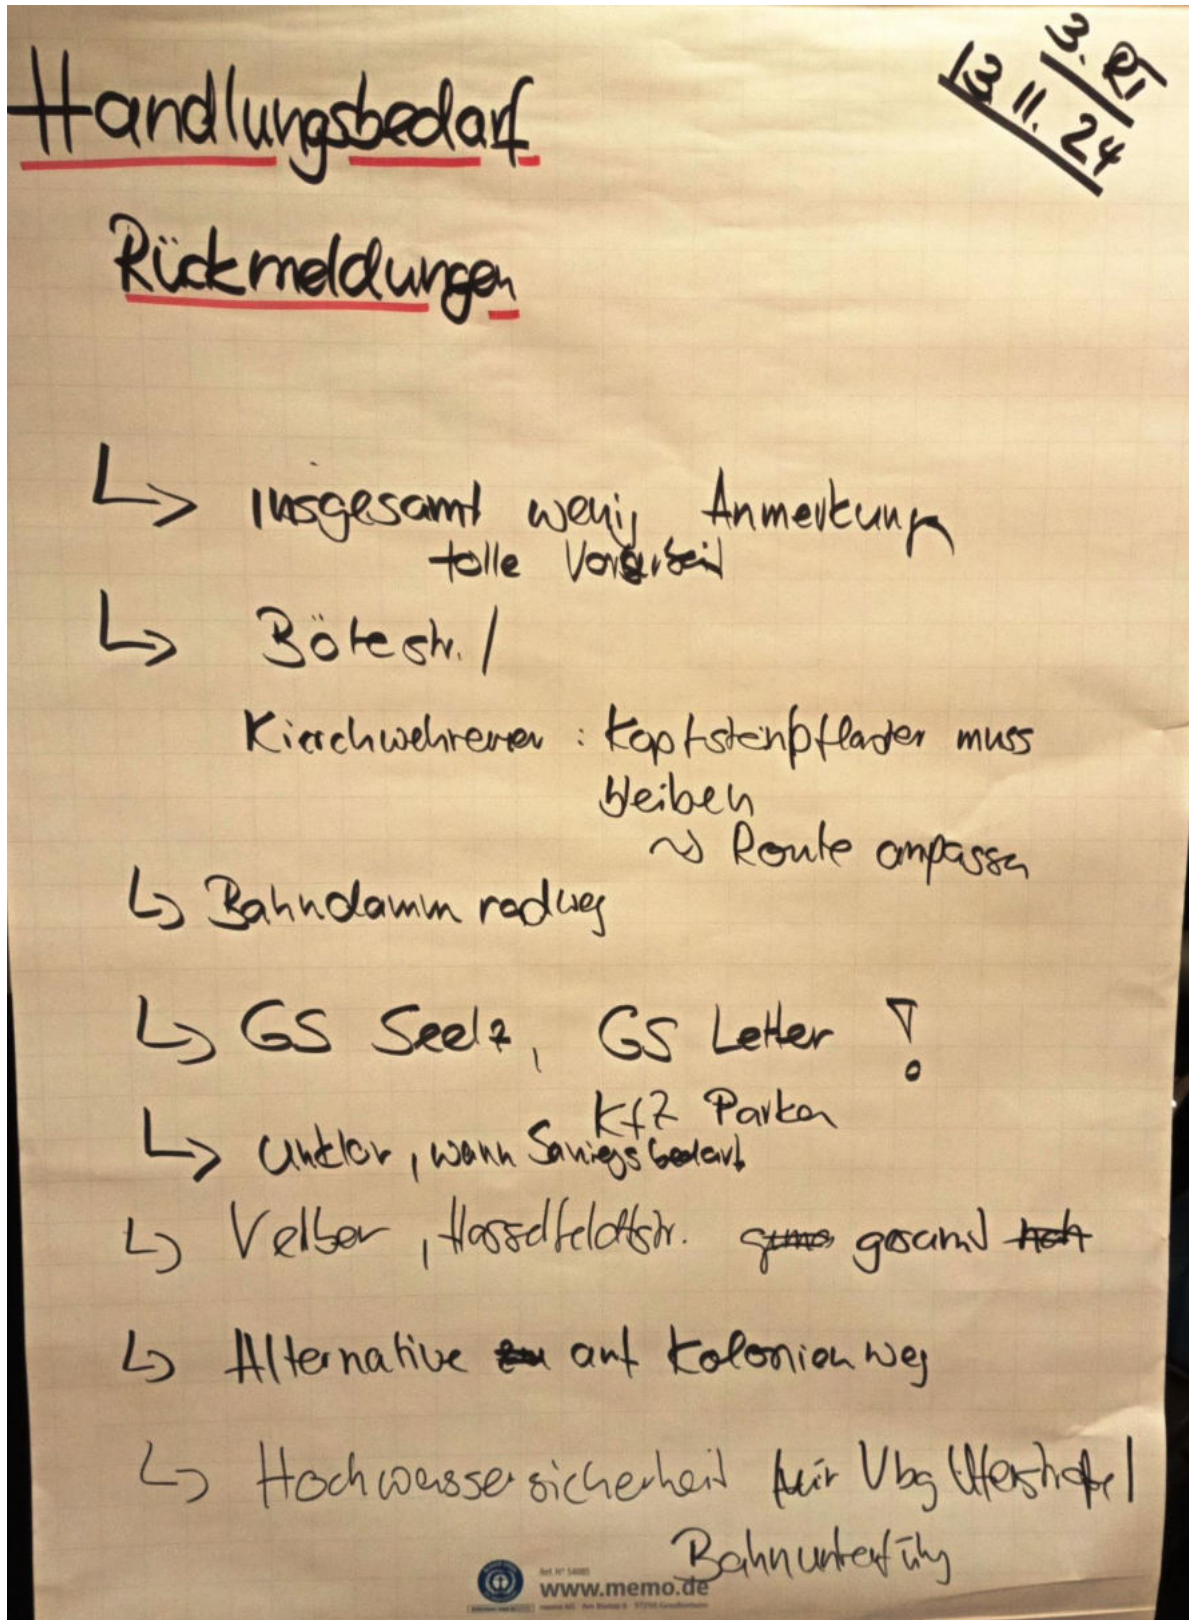 3. RT
13.11.24
Handlungsbedarf
Rückmeldungen
↳ insgesamt wenig Anmerkungen
tolle Vorarbeit
↳ Bötestr. /
Kirchwehrener : Kopfsteinpflaster muss
bleiben
~> Route anpassen
↳ Bahndammradweg
↳ GS Seelz, GS Letter !
Kfz Parken
↳ unklar, wann Sanierungsbedarf
↳ Velber, Hasselfeldtstr. gesamt
↳ Alternative auf Kolonienweg
↳ Hochwassersicherheit für Vbg Uferstraße /
Bahnunterführg
www.memo.de